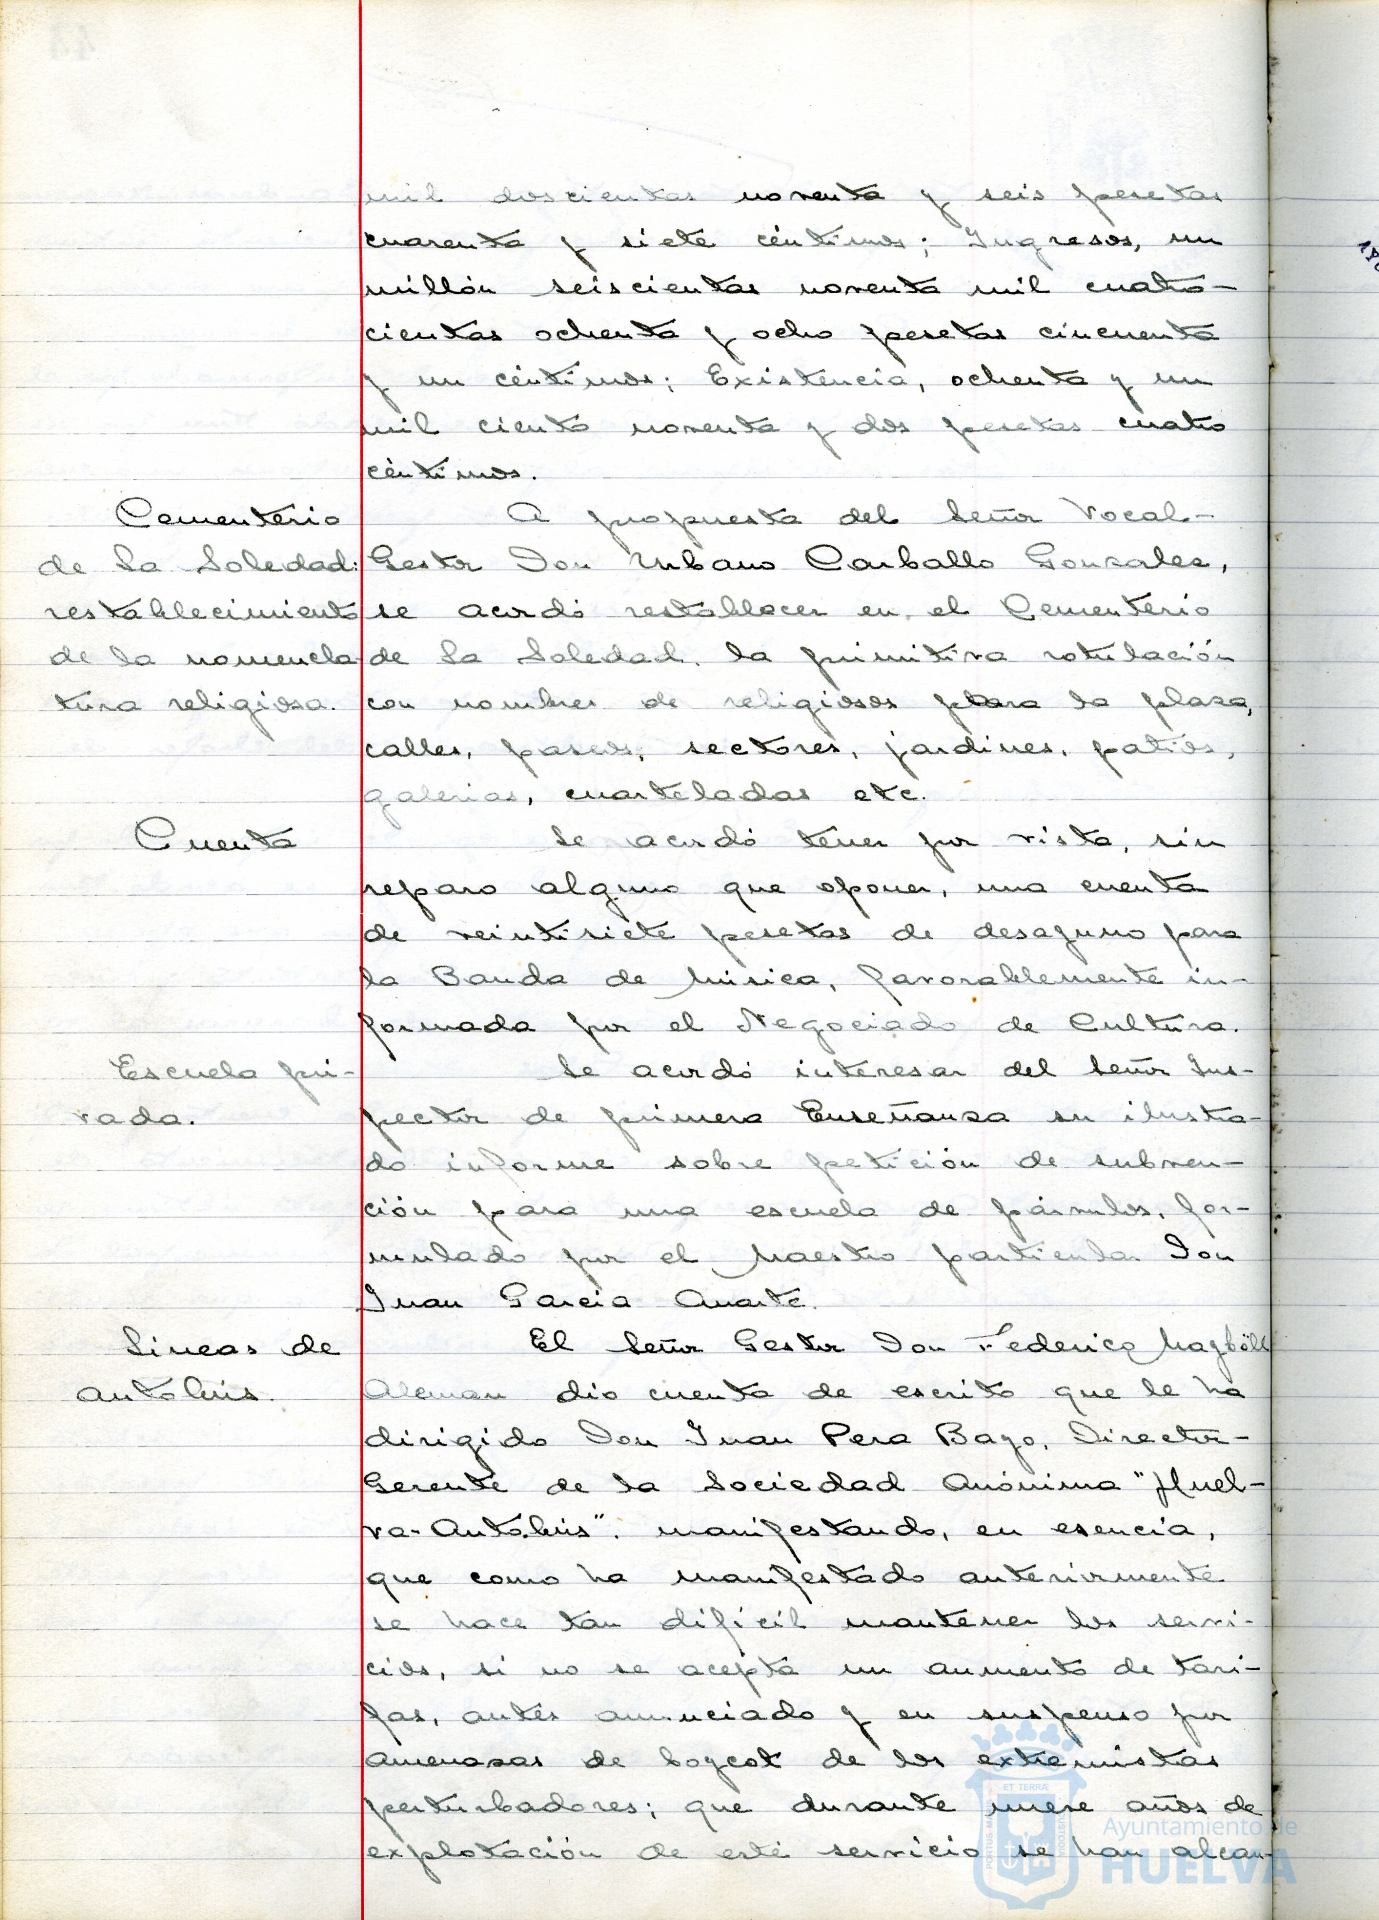 mil doscientas noventa y seis pesetas
cuarenta y siete céntimos; Ingresos, un
millón seiscientas noventa mil cuatro-
cientas ochenta y ocho pesetas cincuenta
y un céntimos; Existencia, ochenta y un
mil ciento noventa y dos pesetas cuatro
céntimos.
Cementerio
de La Soledad:
restablecimiento
de la nomencla
tura religiosa.
A propuesta del Señor Vocal-
Gestor Don Urbano Carballo Gonzalez,
se acordó restablecer en el Cementerio
de La Soledad, la primitiva rotulación
con nombres de religiosos para la plaza,
calles, paseos, sectores, jardines, patios,
galerias, cuarteladas etc.
Cuenta
Se acordó tener por vista, sin
reparo alguno que oponer, una cuenta
de veintisiete pesetas de desayuno para
la Banda de Música, favorablemente in-
formada por el Negociado de Cultura.
Escuela pri-
vada.
Se acordó interesar del Señor Ins-
pector de primera Enseñanza su ilustra-
do informe sobre petición de subven-
ción para una escuela de párvulos, for-
mulado por el Maestro particular Don
Juan Garcia Duarte.
Lineas de
autobuis.
El Señor Gestor Don Federico
Aleman dio cuenta de escrito que le ha
dirigido Don Juan Pera Bayo, Director-
Gerente de la Sociedad Anónima "Huel-
va-Autobuis". manifestando, en esencia,
que como ha manifestado anteriormente
se hace tan dificil mantener los servi-
cios, si no se acepta un aumento de tari-
fas, antes anunciado y en suspenso por
amenazas de boycot de los extremistas
perturbadores; que durante nueve años de
explotación de este servicio se han alcan-
ET TERRÆ
Ayuntamiento de
HUELVA